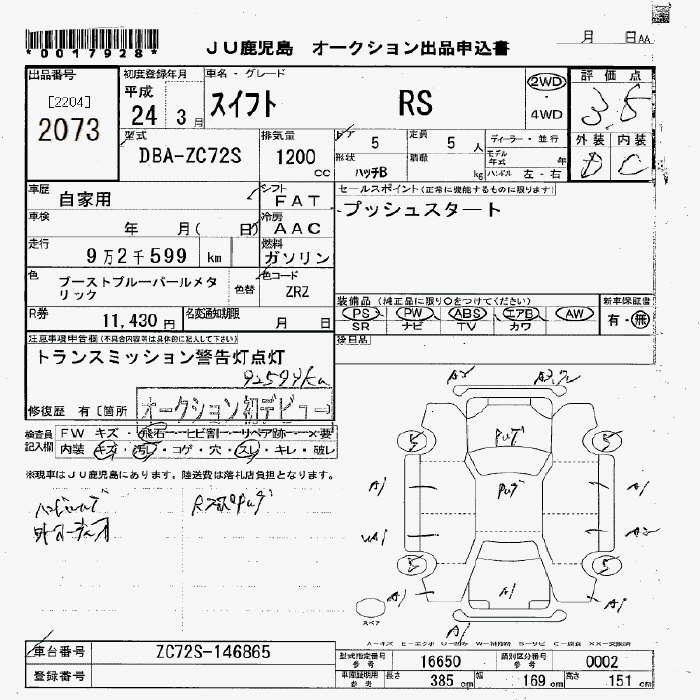 *0017928*
JU鹿児島 オークション出品申込書
月 日AA
出品番号
[2204]
2073
初度登録年月
平成
24 3月
車名・グレード
スイフト RS
2WD
4WD
評価点
3.5
外装 内装
D C
型式
DBA-ZC72S
排気量
1200 cc
ドア 5
定員 5 人
形状 ハッチB
積載 kg
ディーラー・並行
モデル年式 年
ハンドル 左・右
車歴 自家用
シフト FAT
車検 年 月( 日)
冷房 AAC
走行 9万2千599 km
燃料 ガソリン
色 ブーストブルーパールメタリック
色替
色コード ZRZ
R券 11,430円
名変通知期限 月 日
セールスポイント(正常に機能するものに限ります)
プッシュスタート
装備品(純正品に限り○をつけてください)
PS PW ABS エアB AW
SR ナビ TV カワ
新車保証書
有・無
後日品
注意事項申告欄(不具合内容等は具体的に記入して下さい)
トランスミッション警告灯点灯
92599km
修復歴 有[箇所
オークション初デビュー
検査員記入欄
FW キズ・飛石・ヒビ割・リペア跡・×要
内装 キズ・汚レ・コゲ・穴・スレ・キレ・破レ
※現車はJU鹿児島にあります。陸送費は落札店負担となります。
A2
5 5
A1 A1
A2
5 5
A1 A1 A1
A1
スペア
A=キズ
車台番号 ZC72S-146865
登録番号
型式指定番号 参考 16650
類別区分番号 参考 0002
車庫証明用 参考 長さ 385 cm 幅 169 cm 高さ 151 cm